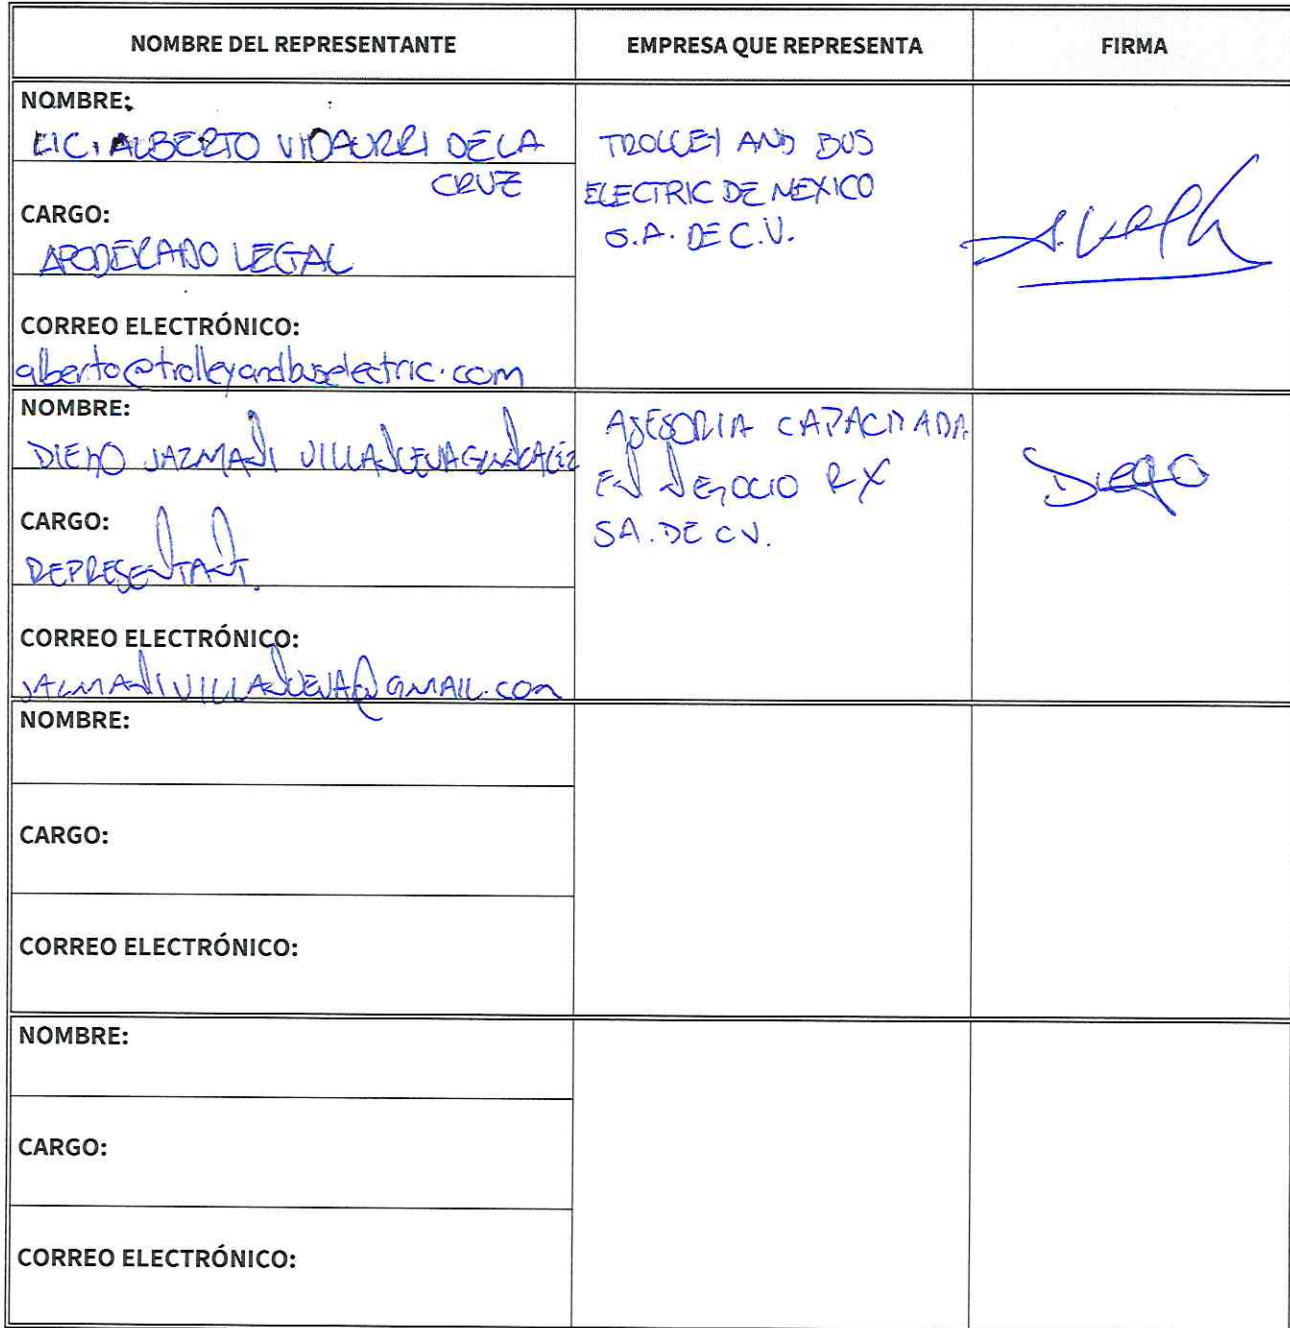 NOMBRE DEL REPRESENTANTE EMPRESA QUE REPRESENTA FIRMA
NOMBRE:
LIC. ALBERTO VIDAURRI DE LA
CRUZ
CARGO:
APODERADO LEGAL
CORREO ELECTRÓNICO:
alberto@trolleyandbuselectric.com
TROLLEY AND BUS
ELECTRIC DE MEXICO
S.A. DE C.V.
NOMBRE:
DIEGO JAZMANI VILLANUEVA GONZALEZ
CARGO:
REPRESENTANT.
CORREO ELECTRÓNICO:
JAZMANIVILLANUEVA@GMAIL.COM
ASESORIA CAPACITADA
EN NEGOCIO RX
SA. DE CV.
Diego
NOMBRE:
CARGO:
CORREO ELECTRÓNICO:
NOMBRE:
CARGO:
CORREO ELECTRÓNICO: